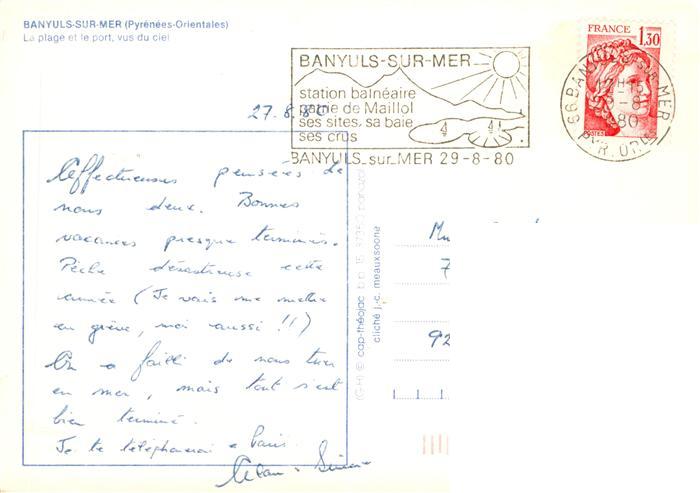 BANYULS-SUR-MER (Pyrénées-Orientales)
La plage et le port, vus du ciel
BANYULS-SUR-MER
station balnéaire
patrie de Maillol
ses sites, sa baie
ses crus
BANYULS_sur_MER 29-8-80
FRANCE
1,30
POSTES
66 BANYULS SUR MER
12H15
-8
80
PYR. ORles
27.8.80
Affectueuses pensées de
nous deux. Bonnes
vacances presque terminées.
Pêche désastreuse cette
année (Je vais me mettre
en grève, moi aussi !!)
On a failli de nous tuer
en mer, mais tout s'est
bien terminé.
Je te téléphonerai à Paris.
(G-H) © cap-théojac b.p. 15 87350 panazol
cliché j.-c. meauxsoone
7
92